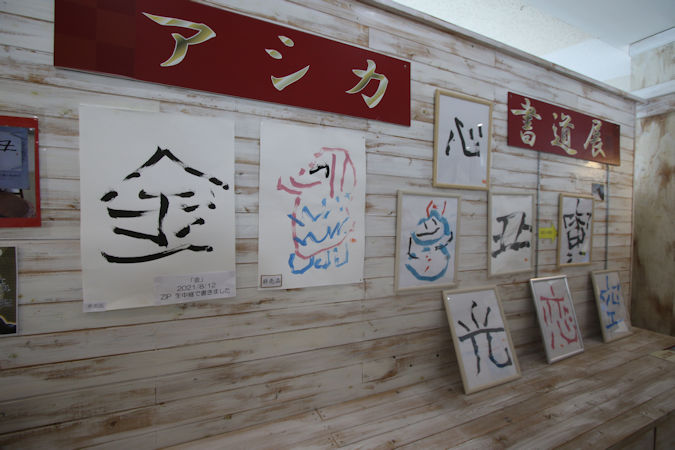 アシカ
書道展
金
「金」
2021/8/12
ZIP 生中継で書きました
非売品
非売品
心
北
光
恋
空